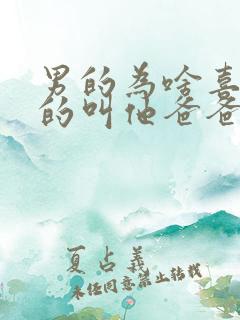 男的為啥喜
的叫他爸爸
夏占義
未经同意禁止转载